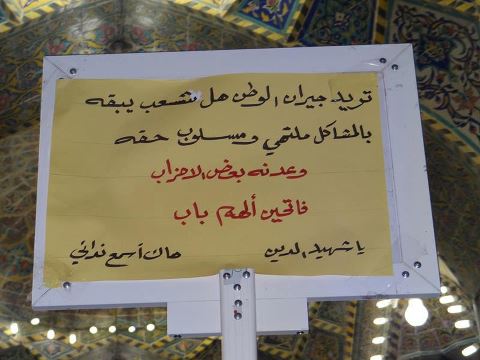 تريد جيران الوطن هل شعب يبقه
بالمشاكل ملتهي ومسلوب حقه
وعدنه بعض الاحزاب
فاتحين ألهم باب
يا شهيد الدين هاك أسمع ندائي